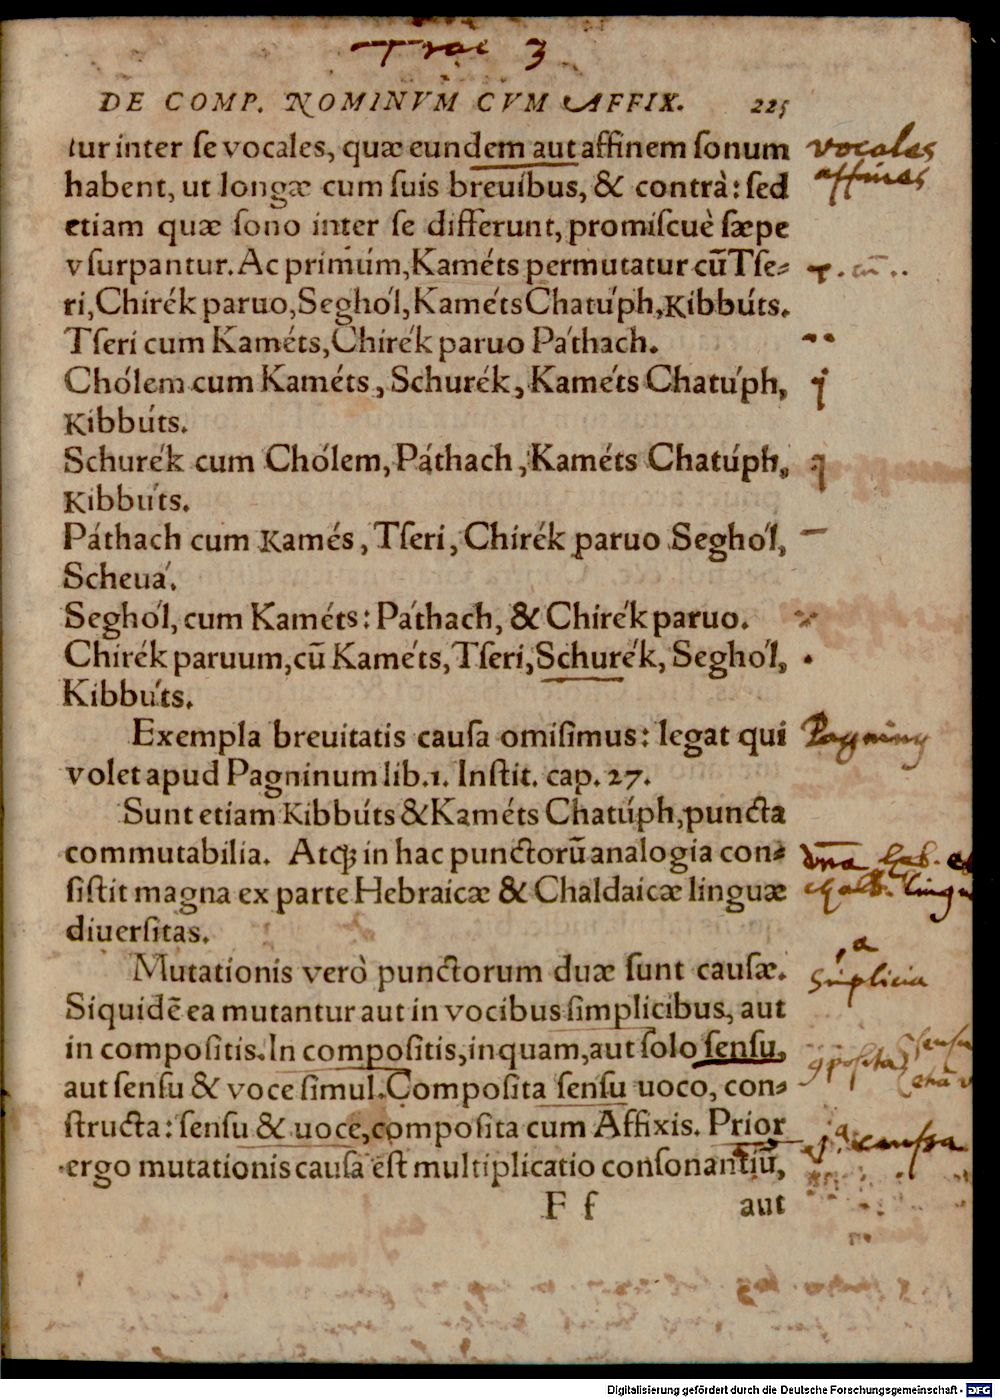 Trac 3
DE COMP. NOMINVM CVM AFFIX. 225
tur inter ſe vocales, quæ eundem aut affinem ſonum
vocales
habent, ut longæ cum ſuis breuibus, & contrà: ſed
affines
etiam quæ ſono inter ſe differunt, promiſcuè ſæpe
vſurpantur. Ac primùm, Kaméts permutatur cū Tſe-
ri, Chírék paruo, Seghól, Kaméts Chatúph, Kibbúts.
Tſeri cum Kaméts, Chírék paruo Páthach.
Chólem cum Kaméts, Schurék, Kaméts Chatúph,
Kibbúts.
Schurék cum Chólem, Páthach, Kaméts Chatúph,
Kibbúts.
Páthach cum Kamés, Tſeri, Chírék paruo Seghól,
Scheuá.
Seghól, cum Kaméts: Páthach, & Chirék paruo.
Chirék paruum, cū Kaméts, Tſeri, Schurék, Seghól,
Kibbúts.
Exempla breuitatis cauſa omiſimus: legat qui
volet apud Pagninum lib. 1. Inſtit. cap. 27.
Sunt etiam Kibbúts & Kaméts Chatúph, puncta
commutabilia. Atq; in hac punctorū analogia con-
ſiſtit magna ex parte Hebraicæ & Chaldaicæ linguæ
diuerſitas.
Mutationis verò punctorum duæ ſunt cauſæ.
simplicia
Siquidē ea mutantur aut in vocibus ſimplicibus, aut
in compoſitis. In compoſitis, inquam, aut ſolo ſenſu,
aut ſenſu & voce ſimul. Compoſita ſenſu uoco, con-
ſtructa: ſenſu & uoce, compoſita cum Affixis. Prior
1ª causa
ergo mutationis cauſa eſt multiplicatio conſonantiū,
F f aut
Digitalisierung gefördert durch die Deutsche Forschungsgemeinschaft - DFG